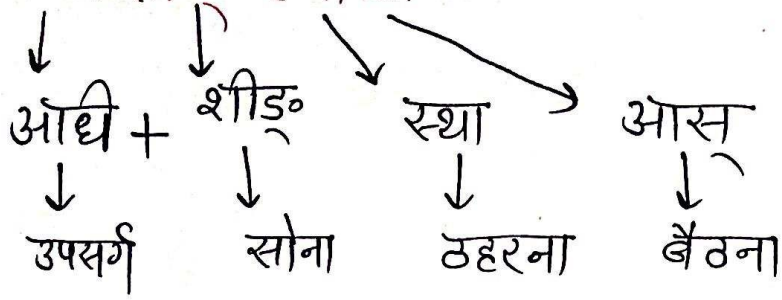 आधि + शीङ् स्था आस्
उपसर्ग सोना ठहरना बैठना